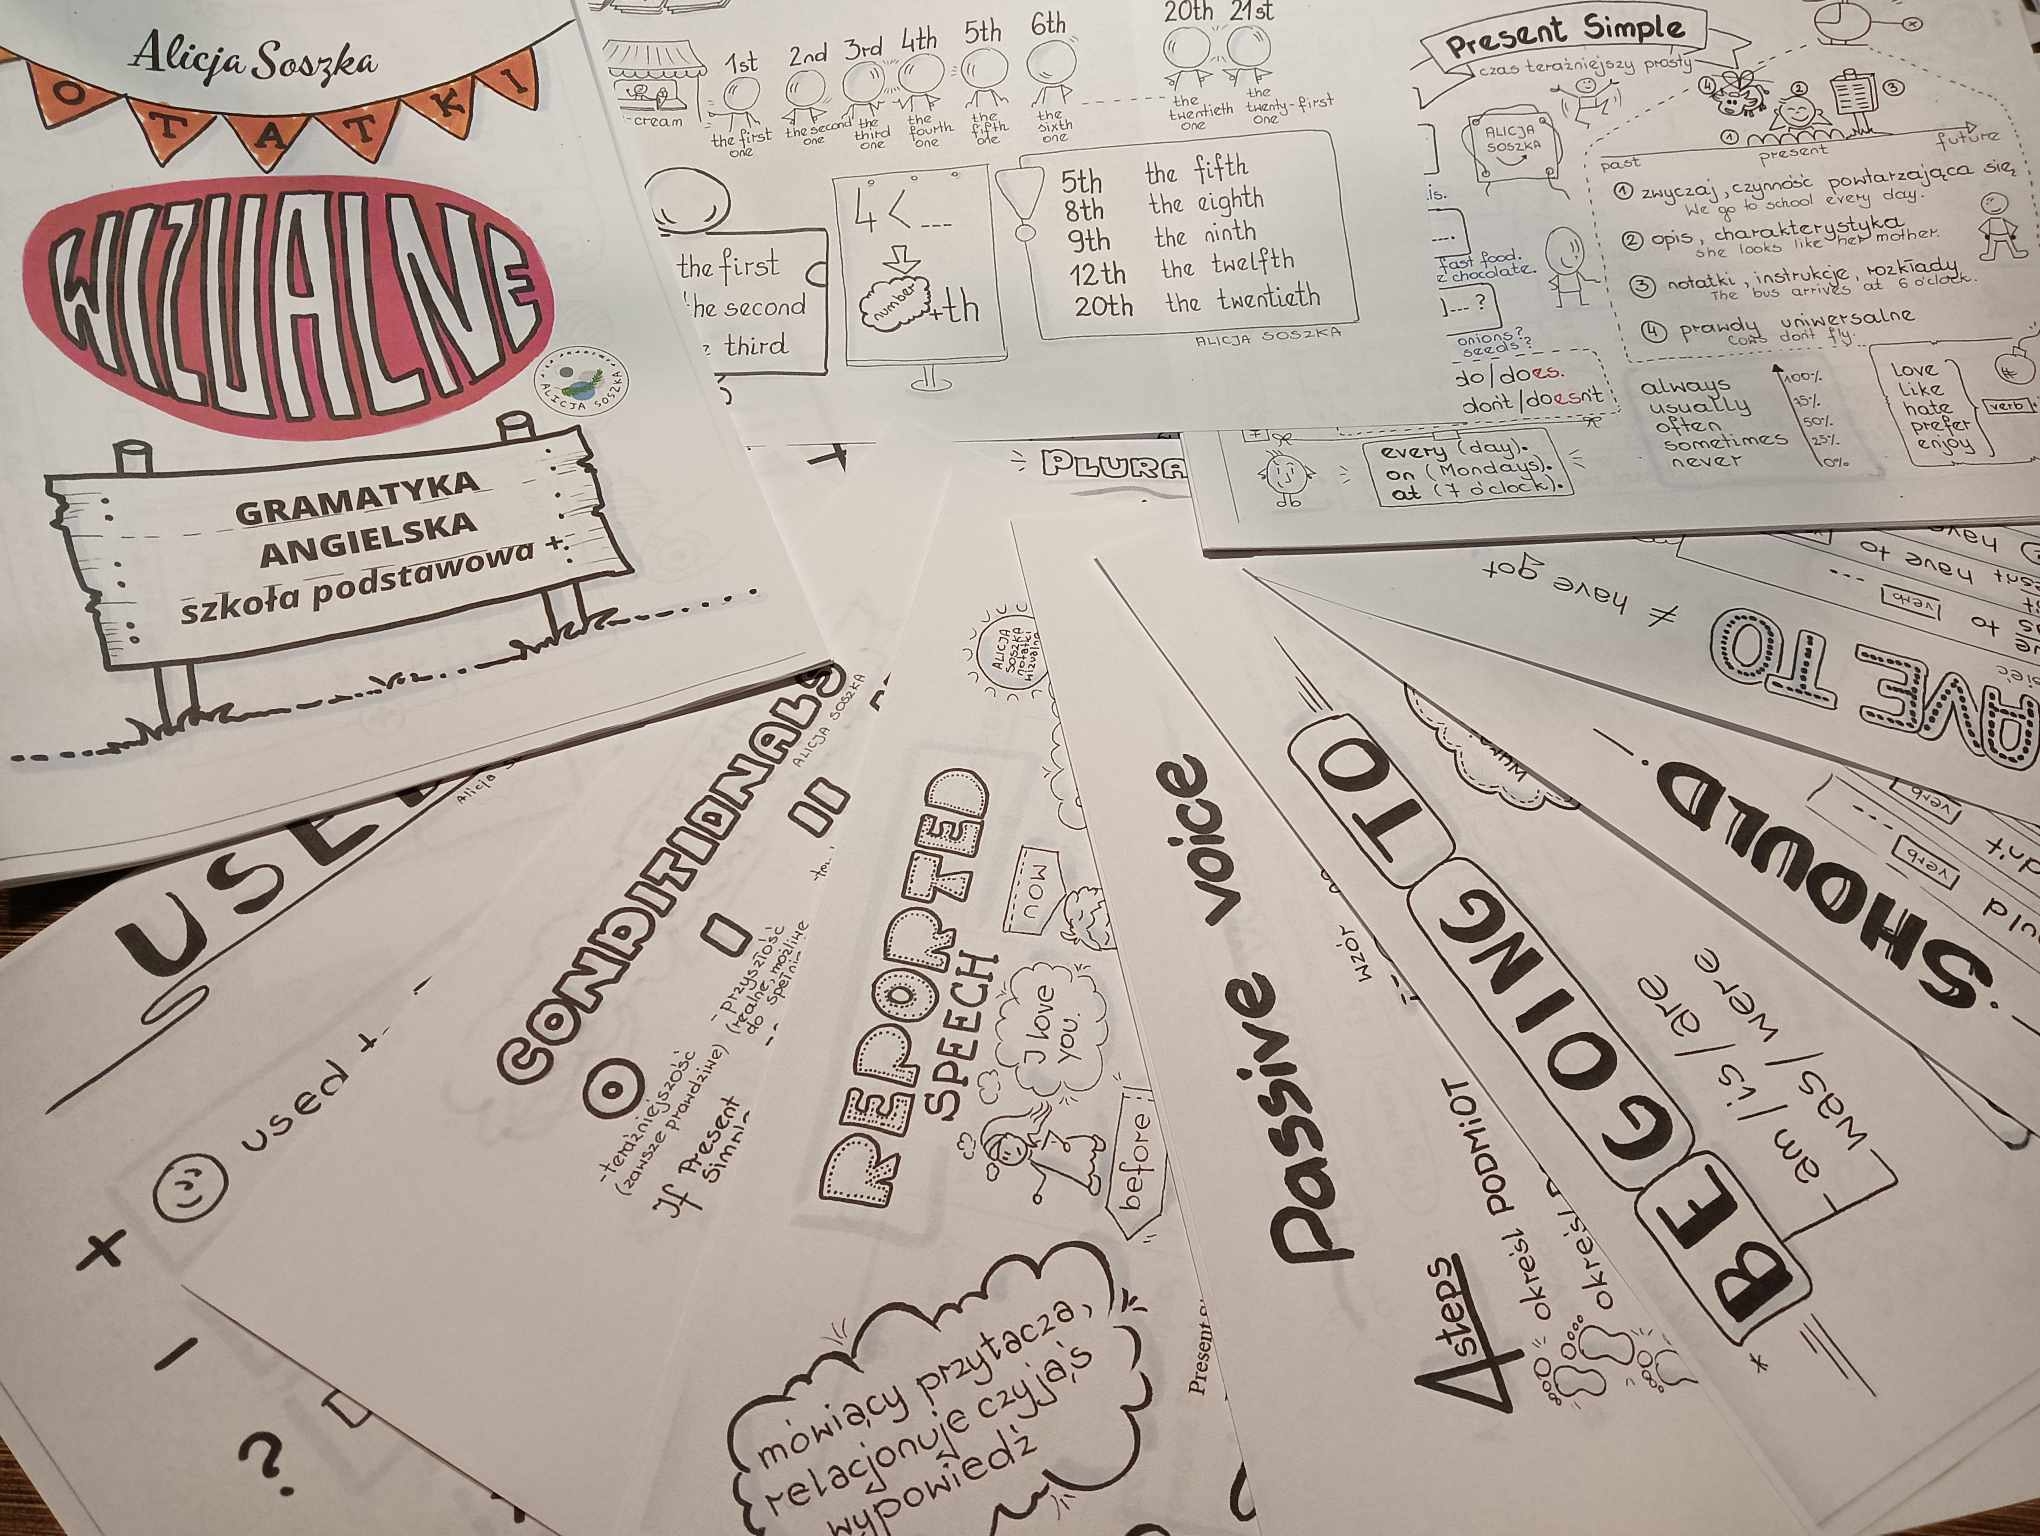 Alicja Soszka
OTATKI
WIZUALNE
ALICJA SOSZKA
GRAMATYKA
ANGIELSKA
szkoła podstawowa +
-cream
1st 2nd 3rd 4th 5th 6th 20th 21st
the first one
the second one
the third one
the fourth one
the sixth one
the twentieth one
the twenty-first one
the first
the second
third
4 < ---
number +th
5th the fifth
8th the eighth
9th the ninth
12th the twelfth
20th the twentieth
ALICJA SOSZKA
Present Simple
czas teraźniejszy prosty
ALICJA
SOSZKA
4 2 3
1
past present future
1 zwyczaj, czynność powtarzająca się
We go to school every day.
2 opis, charakterystyka
She looks like her mother.
3 notatki, instrukcje, rozkłady
The bus arrives at 6 o'clock.
4 prawdy uniwersalne
Cows don't fly.
is.
fast food.
chocolate.
---?
onions?
seeds?
do/does.
don't/doesn't
every (day).
on (Mondays).
at (7 o'clock).
always 100%
usually 75%
often 50%
sometimes 25%
never 0%
love
like
hate
prefer
enjoy
verb
PLURA
≠ have got
AVE TO
have to ---
to verb
SHOULD
verb ---
verb
BE GOING TO
am / is / are
was / were
Passive voice
wzór
4 steps
określ PODMIOT
określ
Present
ALICJA
SOSZKA
notatki
wizualne
REPORTED
SPEECH
now
I love
you.
before
mówiący przytacza,
relacjonuje czyjąś
wypowiedź
CONDITIONALS
ALICJA SOSZKA
0 I II
- teraźniejszość
(zawsze prawdziwe)
If Present
- przyszłość
(realne, możliwe
do spełni
USE
Alicja
+ used +
-
?